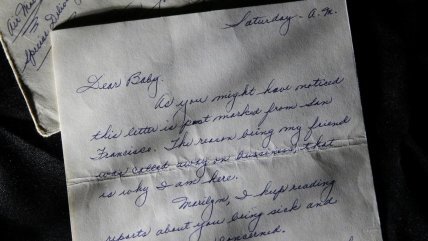 Air Mail
Special Delivery
Saturday - A.M.
Dear Baby,
As you might have noticed
this letter is post marked from San
Francisco. The reason being my friend
was called away on bussiness, that
is why I am here.
Marilyn, I keep reading
reports about you being sick and
concerned.